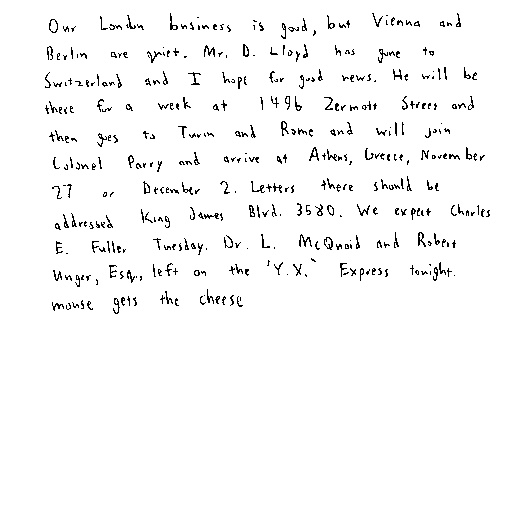 Our London business is good, but Vienna and
Berlin are quiet. Mr. D. Lloyd has gone to
Switzerland and I hope for good news. He will be
there for a week at 1496 Zermott Street and
then goes to Turin and Rome and will join
Colonel Parry and arrive at Athens, Greece, November
27 or December 2. Letters there should be
addressed King James Blvd. 3580. We expect Charles
E. Fuller Tuesday. Dr. L. McQuaid and Robert
Unger, Esq., left on the "Y.X." Express tonight.
mouse gets the cheese